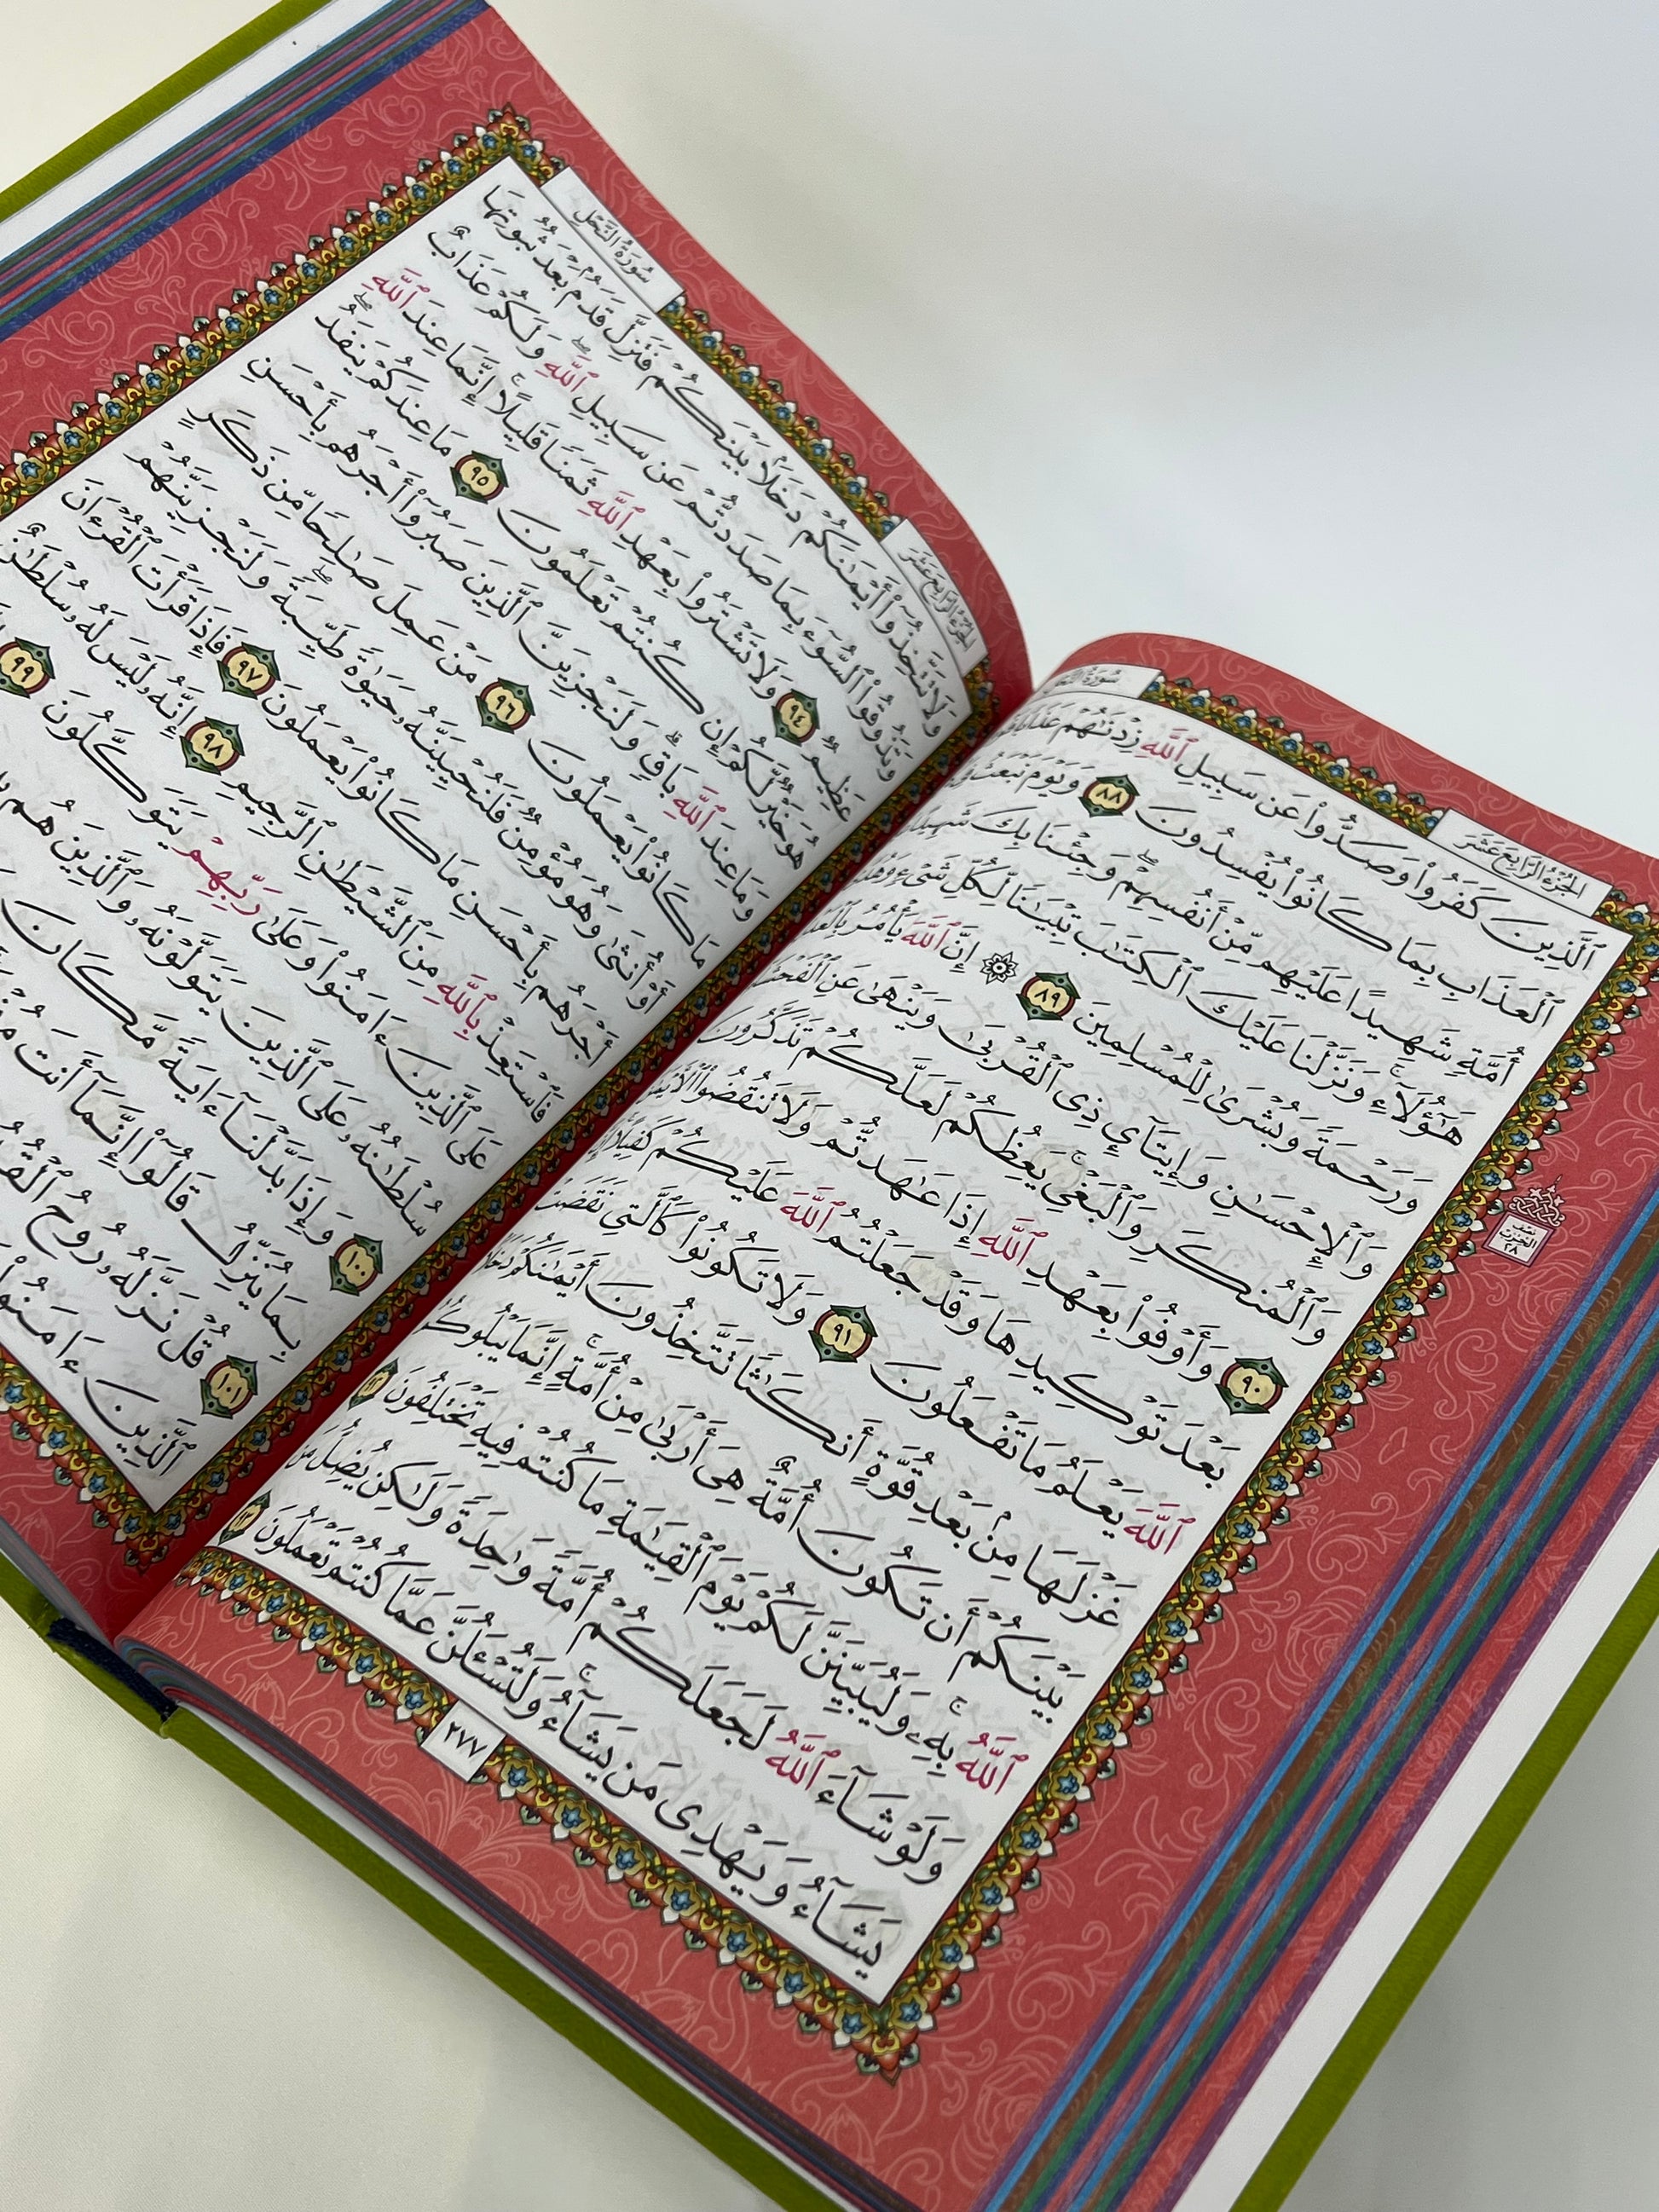 سُورَةُ النَّحْلِ
الجُزْءُ الرَّابِعَ عَشَرَ
ٱلَّذِينَ كَفَرُوا۟ وَصَدُّوا۟ عَن سَبِيلِ ٱللَّهِ زِدْنَٰهُمْ عَذَابًا
ٱلْعَذَابِ بِمَا كَانُوا۟ يُفْسِدُونَ ٨٨ وَيَوْمَ نَبْعَثُ
أُمَّةٍ شَهِيدًا عَلَيْهِم مِّنْ أَنفُسِهِمْ ۖ وَجِئْنَا بِكَ شَهِيدًا
هَٰٓؤُلَآءِ ۚ وَنَزَّلْنَا عَلَيْكَ ٱلْكِتَٰبَ تِبْيَٰنًا لِّكُلِّ شَىْءٍ
وَرَحْمَةً وَبُشْرَىٰ لِلْمُسْلِمِينَ ٨٩ ۞ إِنَّ ٱللَّهَ يَأْمُرُ
وَٱلْإِحْسَٰنِ وَإِيتَآئِ ذِى ٱلْقُرْبَىٰ وَيَنْهَىٰ عَنِ
وَٱلْمُنكَرِ وَٱلْبَغْىِ ۚ يَعِظُكُمْ لَعَلَّكُمْ تَذَكَّرُونَ
٩٠ وَأَوْفُوا۟ بِعَهْدِ ٱللَّهِ إِذَا عَٰهَدتُّمْ وَلَا تَنقُضُوا۟
بَعْدَ تَوْكِيدِهَا وَقَدْ جَعَلْتُمُ ٱللَّهَ عَلَيْكُمْ كَفِيلًا
ٱللَّهَ يَعْلَمُ مَا تَفْعَلُونَ ٩١ وَلَا تَكُونُوا۟ كَٱلَّتِى نَقَضَتْ
غَزْلَهَا مِنۢ بَعْدِ قُوَّةٍ أَنكَٰثًا تَتَّخِذُونَ أَيْمَٰنَكُمْ
بَيْنَكُمْ أَن تَكُونَ أُمَّةٌ هِىَ أَرْبَىٰ مِنْ أُمَّةٍ ۚ إِنَّمَا يَبْلُوكُمُ
ٱللَّهُ بِهِۦ ۚ وَلَيُبَيِّنَنَّ لَكُمْ يَوْمَ ٱلْقِيَٰمَةِ مَا كُنتُمْ فِيهِ تَخْتَلِفُونَ ٩٢
وَلَوْ شَآءَ ٱللَّهُ لَجَعَلَكُمْ أُمَّةً وَٰحِدَةً وَلَٰكِن يُضِلُّ مَن
يَشَآءُ وَيَهْدِى مَن يَشَآءُ ۚ وَلَتُسْـَٔلُنَّ عَمَّا كُنتُمْ تَعْمَلُونَ ٩٣
٢٧٧
نصف
الحزب
٢٨
سُورَةُ النَّحْلِ
الجُزْءُ الرَّابِعَ عَشَرَ
وَلَا تَتَّخِذُوٓا۟ أَيْمَٰنَكُمْ دَخَلًۢا بَيْنَكُمْ فَتَزِلَّ قَدَمٌۢ بَعْدَ ثُبُوتِهَا
وَتَذُوقُوا۟ ٱلسُّوٓءَ بِمَا صَدَدتُّمْ عَن سَبِيلِ ٱللَّهِ ۖ وَلَكُمْ عَذَابٌ
عَظِيمٌ ٩٤ وَلَا تَشْتَرُوا۟ بِعَهْدِ ٱللَّهِ ثَمَنًا قَلِيلًا ۚ إِنَّمَا عِندَ ٱللَّهِ
هُوَ خَيْرٌ لَّكُمْ إِن كُنتُمْ تَعْلَمُونَ ٩٥ مَا عِندَكُمْ يَنفَدُ ۖ
وَمَا عِندَ ٱللَّهِ بَاقٍ ۗ وَلَنَجْزِيَنَّ ٱلَّذِينَ صَبَرُوٓا۟ أَجْرَهُم بِأَحْسَنِ
مَا كَانُوا۟ يَعْمَلُونَ ٩٦ مَنْ عَمِلَ صَٰلِحًا مِّن ذَكَرٍ
أَوْ أُنثَىٰ وَهُوَ مُؤْمِنٌ فَلَنُحْيِيَنَّهُۥ حَيَوٰةً طَيِّبَةً ۖ وَلَنَجْزِيَنَّهُمْ
أَجْرَهُم بِأَحْسَنِ مَا كَانُوا۟ يَعْمَلُونَ ٩٧ فَإِذَا قَرَأْتَ ٱلْقُرْءَانَ
فَٱسْتَعِذْ بِٱللَّهِ مِنَ ٱلشَّيْطَٰنِ ٱلرَّجِيمِ ٩٨ إِنَّهُۥ لَيْسَ لَهُۥ سُلْطَٰنٌ
عَلَى ٱلَّذِينَ ءَامَنُوا۟ وَعَلَىٰ رَبِّهِمْ يَتَوَكَّلُونَ ٩٩
سُلْطَٰنُهُۥ عَلَى ٱلَّذِينَ يَتَوَلَّوْنَهُۥ وَٱلَّذِينَ هُم
١٠٠ وَإِذَا بَدَّلْنَآ ءَايَةً مَّكَانَ
بِمَا يُنَزِّلُ قَالُوٓا۟ إِنَّمَآ أَنتَ
١٠١ قُلْ نَزَّلَهُۥ رُوحُ
ٱلَّذِينَ ءَامَنُوا۟